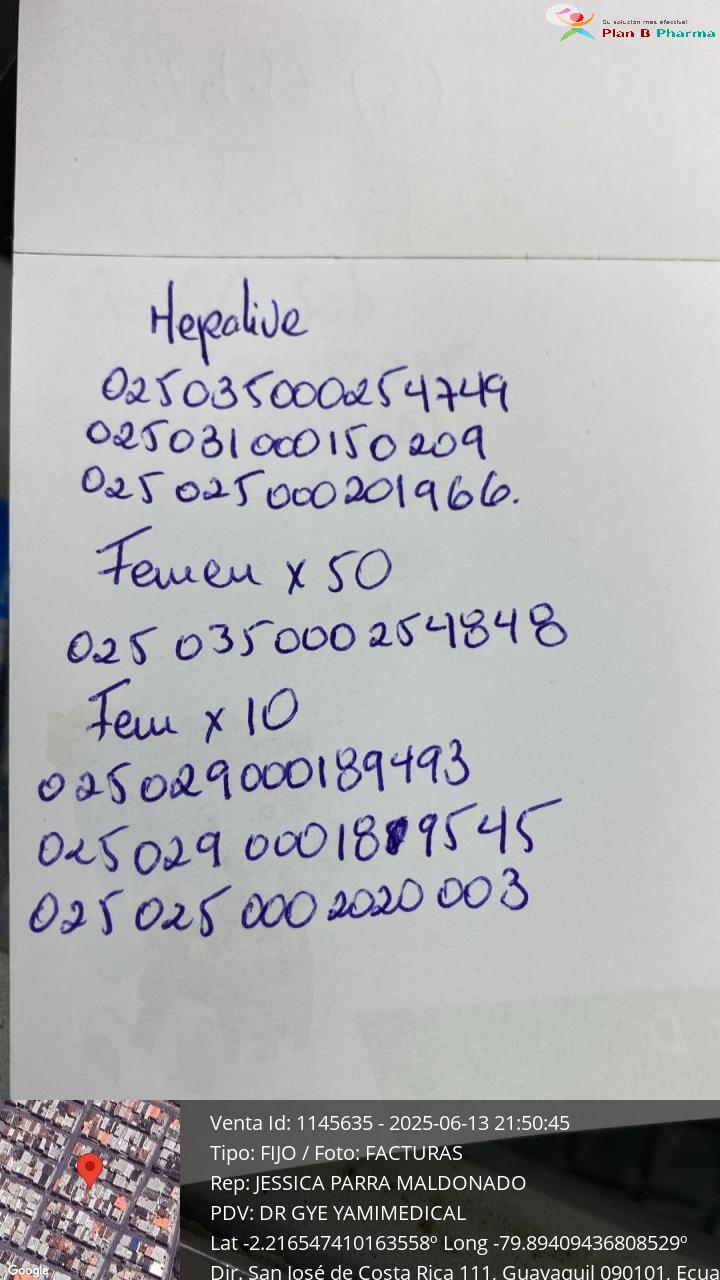 Su solución mas efectiva!
Plan B Pharma
Hepalive
025035000254749
025031000150209
025025000201966.
Femen x 50
025 035000 254848
Fem x 10
025029000189493
025029 000189545
025 025 000 2020 003
Venta Id: 1145635 - 2025-06-13 21:50:45
Tipo: FIJO / Foto: FACTURAS
Rep: JESSICA PARRA MALDONADO
PDV: DR GYE YAMIMEDICAL
Lat -2.216547410163558º Long -79.89409436808529º
Dir. San José de Costa Rica 111, Guayaquil 090101, Ecua
Google